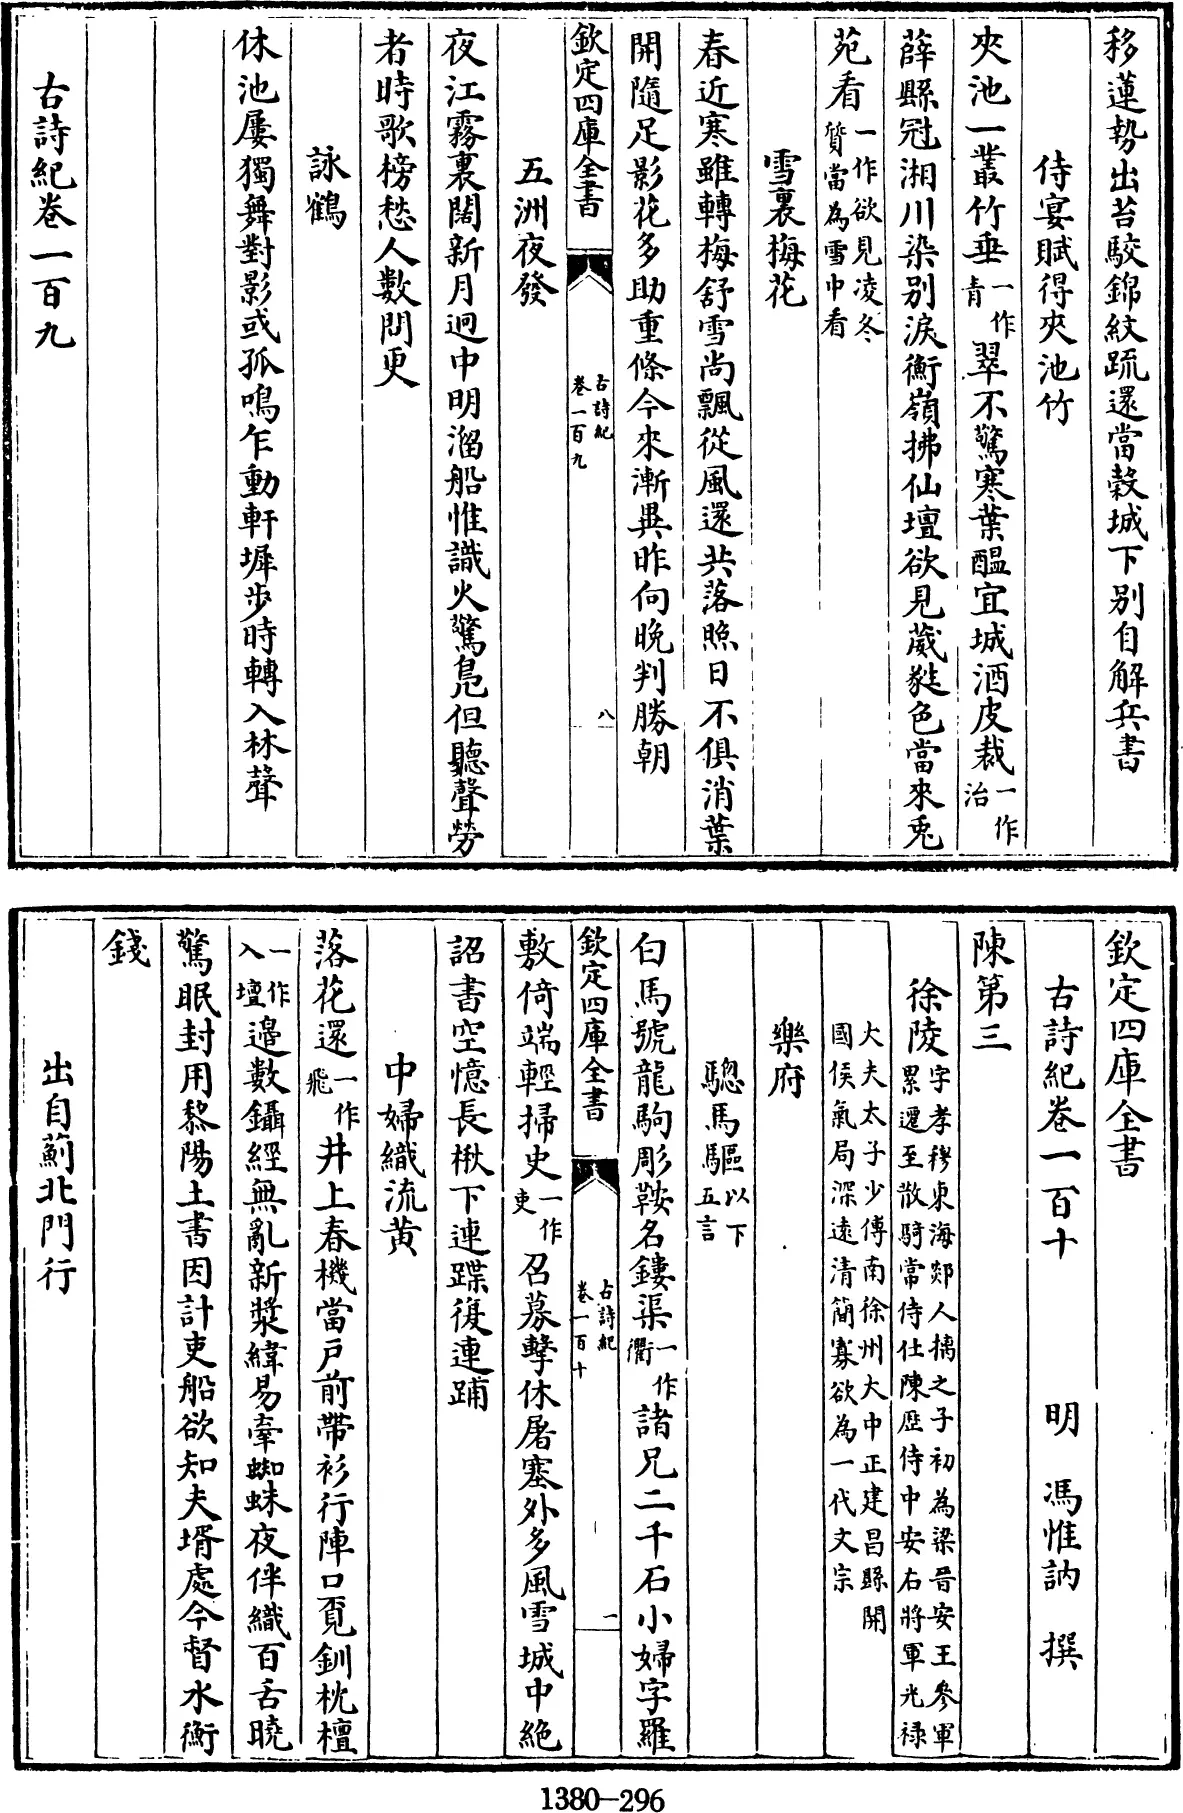 移蓮勢出苔駮錦紋疏還當榖城下别自解兵書
侍宴賦得夾池竹
夾池一叢竹垂一作青翠不驚寒葉醖宜城酒皮裁一作治
薛縣冠湘川染别淚衡嶺拂仙壇欲見葳蕤色當來兎
苑看一作欲見凌冬質當為雪中看
雪裏梅花
春近寒雖轉梅舒雪尚飄從風還共落照日不俱消葉
開隨足影花多助重條今來漸異昨向晚判勝朝
欽定四庫全書
古詩紀
卷一百九
八
五洲夜發
夜江霧裏闊新月迥中明溜船惟識火驚鳬但聽聲勞
者時歌榜愁人數問更
詠鶴
休池屢獨舞對影或孤鳴乍動軒墀步時轉入林聲
古詩紀卷一百九
欽定四庫全書
古詩紀卷一百十
明 馮惟訥 撰
陳第三
徐陵字孝穆東海郯人摛之子初為梁晋安王參軍
累遷至散騎常侍仕陳歴侍中安右將軍光禄
大夫太子少傅南徐州大中正建昌縣開
國侯氣局深遠清簡寡欲為一代文宗
樂府
驄馬驅以下五言
白馬號龍駒彫鞍名鏤渠一作衢諸兄二千石小婦字羅
欽定四庫全書
古詩紀
卷一百十
一
敷倚端輕掃史一作吏召募擊休屠塞外多風雪城中絶
詔書空憶長楸下連蹀復連踊
中婦織流黄
落花還一作飛井上春機當戸前帶衫行障口覓釧枕檀
一作入壇邉數鑷經無亂新漿緯易牽蜘蛛夜伴織百舌曉
驚眠封用黎陽土書因計吏船欲知夫壻處今督水衡
錢
出自薊北門行
1380-296